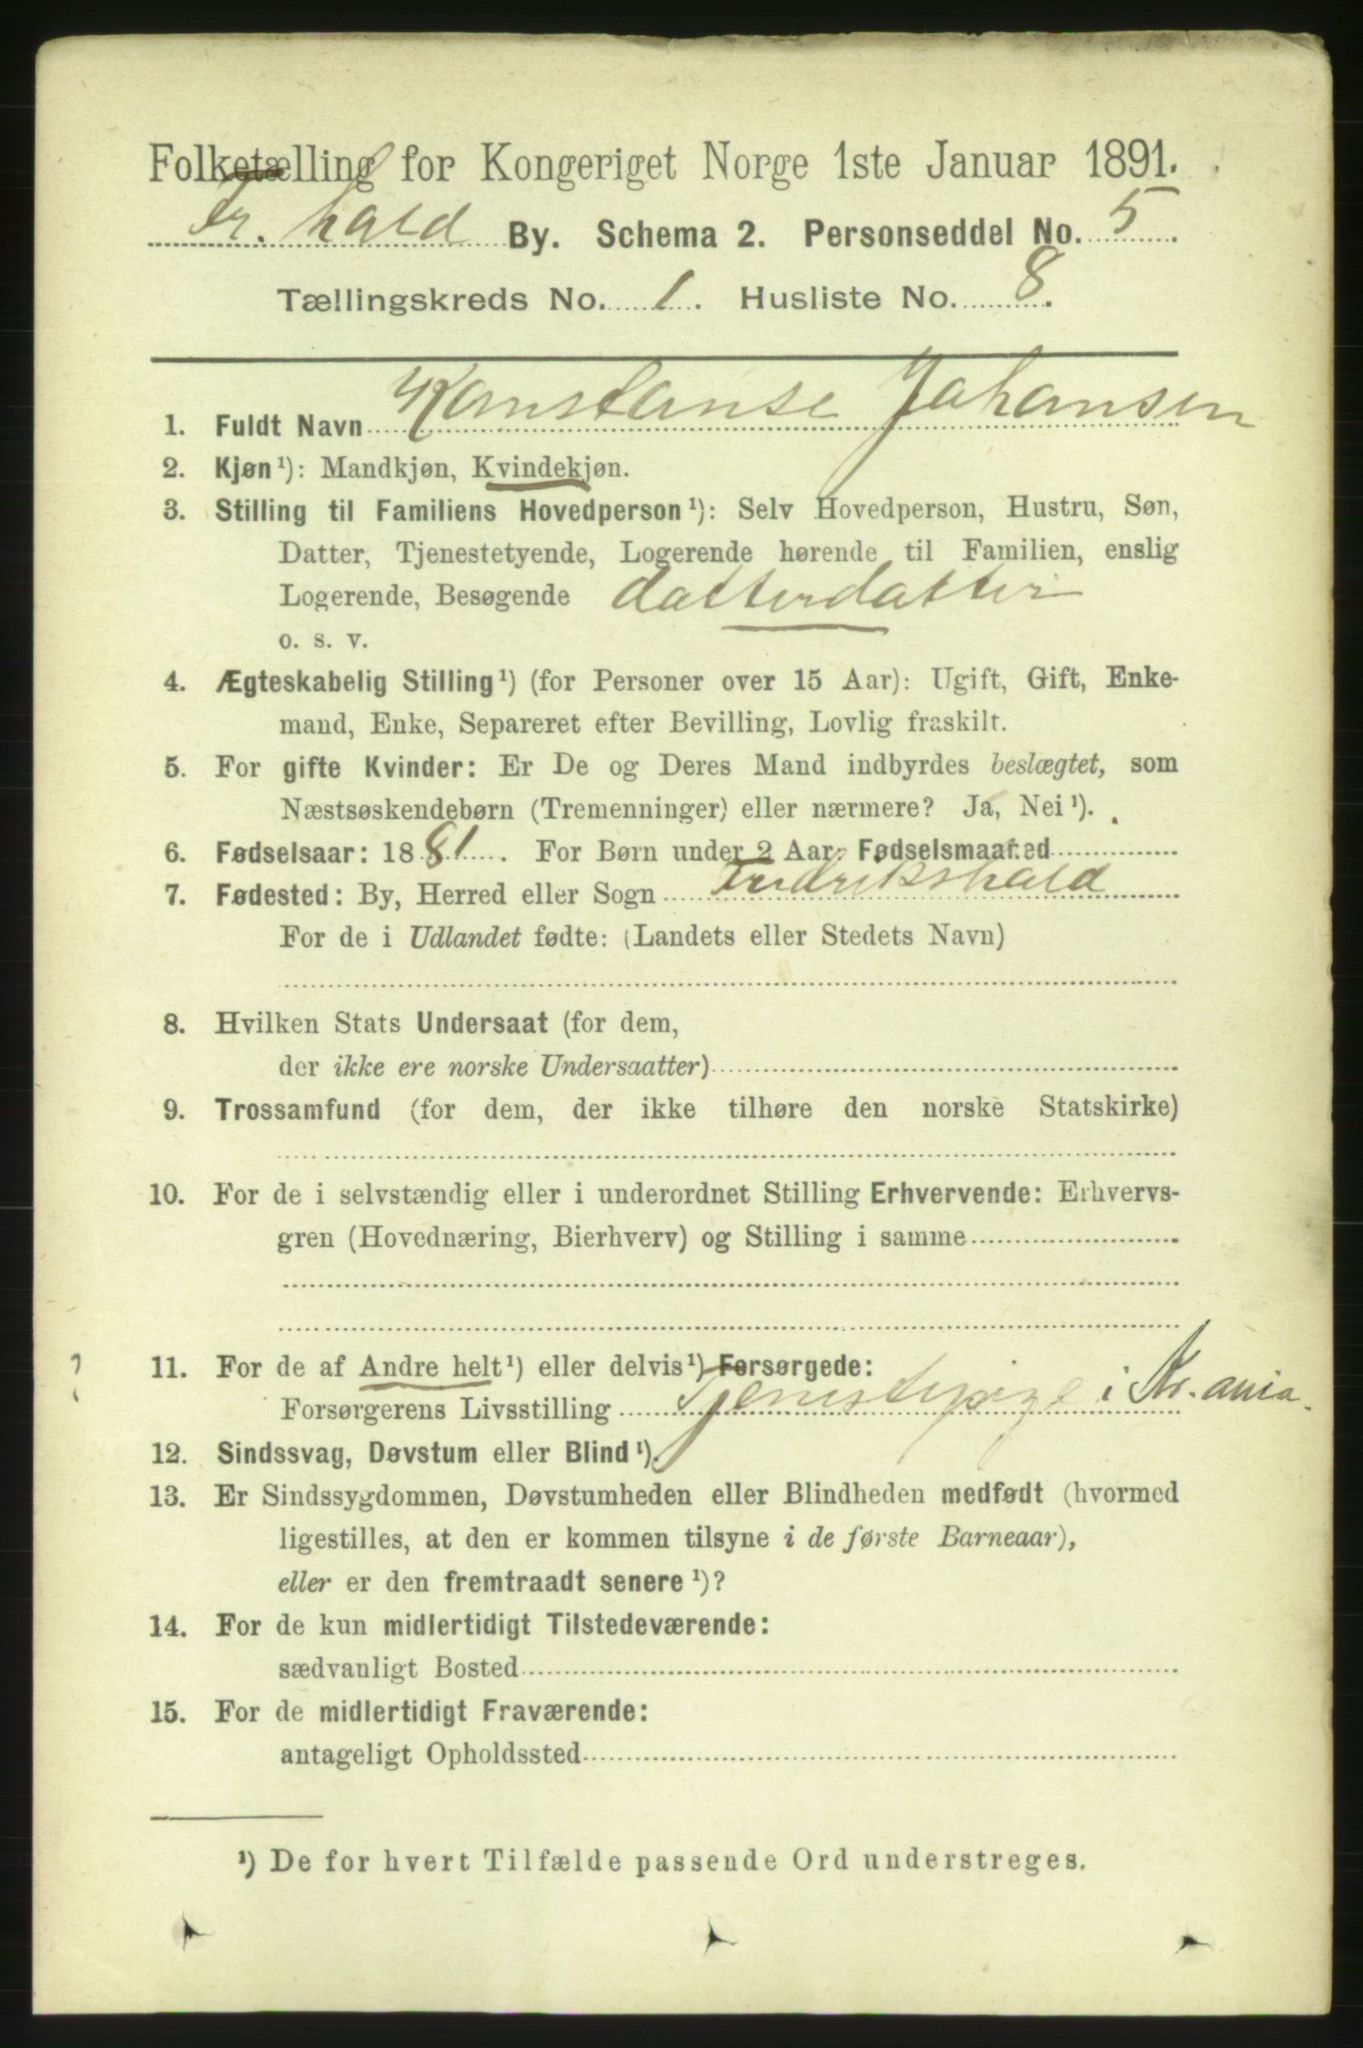 Folketælling for Kongeriget Norge 1ste Januar 1891.
Fr. hald By. Schema 2. Personseddel No. 5
Tællingskreds No. 1. Husliste No. 8.
1. Fuldt Navn Konstanse Johansen
2. Kjøn¹): Mandkjøn, Kvindekjøn.
3. Stilling til Familiens Hovedperson¹): Selv Hovedperson, Hustru, Søn,
Datter, Tjenestetyende, Logerende hørende til Familien, enslig
Logerende, Besøgende datterdatter
o. s. v.
4. Ægteskabelig Stilling¹) (for Personer over 15 Aar): Ugift, Gift, Enke-
mand, Enke, Separeret efter Bevilling, Lovlig fraskilt.
5. For gifte Kvinder: Er De og Deres Mand indbyrdes beslægtet, som
Næstsøskendebørn (Tremenninger) eller nærmere? Ja, Nei¹).
6. Fødselsaar: 1881. For Børn under 2 Aar: Fødselsmaaned
7. Fødested: By, Herred eller Sogn Fredrikshald
For de i Udlandet fødte: (Landets eller Stedets Navn)
8. Hvilken Stats Undersaat (for dem,
der ikke ere norske Undersaatter)
9. Trossamfund (for dem, der ikke tilhøre den norske Statskirke)
10. For de i selvstændig eller i underordnet Stilling Erhvervende: Erhvervs-
gren (Hovednæring, Bierhverv) og Stilling i samme
11. For de af Andre helt¹) eller delvis¹) Forsørgede:
Forsørgerens Livsstilling Tjenestepige i Kr. ania.
12. Sindssvag, Døvstum eller Blind¹).
13. Er Sindssygdommen, Døvstumheden eller Blindheden medfødt (hvormed
ligestilles, at den er kommen tilsyne i de første Barneaar),
eller er den fremtraadt senere¹)?
14. For de kun midlertidigt Tilstedeværende:
sædvanligt Bosted
15. For de midlertidigt Fraværende:
antageligt Opholdssted
¹) De for hvert Tilfælde passende Ord understreges.